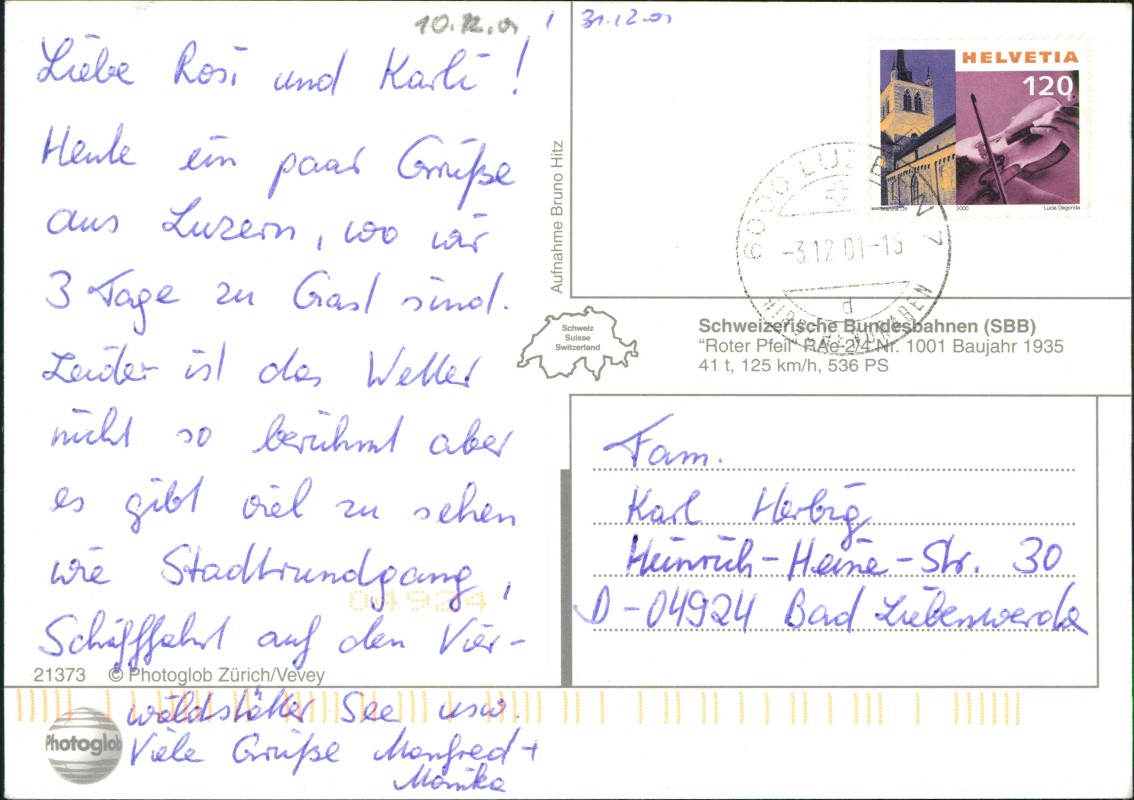 10.12.01 31.12.01
Liebe Rosi und Karli!
Heute ein paar Grüße
aus Luzern, wo wir
3 Tage zu Gast sind.
Leider ist das Wetter
nicht so berühmt aber
es gibt viel zu sehen
wie Stadtrundgang,
Schifffahrt auf den Vier-
waldstätter See usw.
Viele Grüße Manfred +
Monika
04924
21373 © Photoglob Zürich/Vevey
Photoglob
Aufnahme Bruno Hitz
HELVETIA
120
2000
Lucia Degonda
6000 LUZERN 7
-3.12.01-15
d
HIRSCHENGRABEN
Schweiz
Suisse
Switzerland
Schweizerische Bundesbahnen (SBB)
"Roter Pfeil" RAe 2/4 Nr. 1001 Baujahr 1935
41 t, 125 km/h, 536 PS
Fam.
Karl Herbig
Heinrich-Heine-Str. 30
D-04924 Bad Liebenwerda